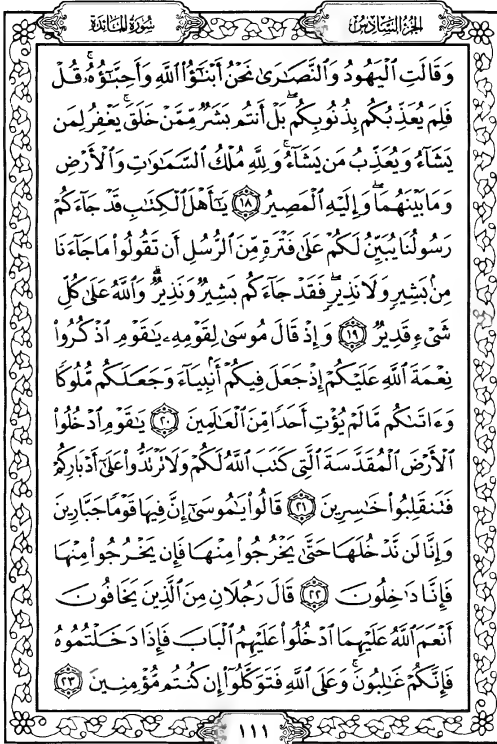 سُورَةُ المَائدَة الجُزءُ السَّادِسُ
وَقَالَتِ الْيَهُودُ وَالنَّصَارَىٰ نَحْنُ أَبْنَاؤُا اللَّهِ وَأَحِبَّاؤُهُۥ ۚ قُلْ
فَلِمَ يُعَذِّبُكُم بِذُنُوبِكُم ۖ بَلْ أَنتُم بَشَرٌ مِّمَّنْ خَلَقَ ۚ يَغْفِرُ لِمَن
يَشَاءُ وَيُعَذِّبُ مَن يَشَاءُ ۚ وَلِلَّهِ مُلْكُ السَّمَاوَاتِ وَالْأَرْضِ
وَمَا بَيْنَهُمَا ۖ وَإِلَيْهِ الْمَصِيرُ ١٨ يَا أَهْلَ الْكِتَابِ قَدْ جَاءَكُمْ
رَسُولُنَا يُبَيِّنُ لَكُمْ عَلَىٰ فَتْرَةٍ مِّنَ الرُّسُلِ أَن تَقُولُوا مَا جَاءَنَا
مِن بَشِيرٍ وَلَا نَذِيرٍ ۖ فَقَدْ جَاءَكُم بَشِيرٌ وَنَذِيرٌ ۗ وَاللَّهُ عَلَىٰ كُلِّ
شَيْءٍ قَدِيرٌ ١٩ وَإِذْ قَالَ مُوسَىٰ لِقَوْمِهِ يَا قَوْمِ اذْكُرُوا
نِعْمَةَ اللَّهِ عَلَيْكُمْ إِذْ جَعَلَ فِيكُمْ أَنبِيَاءَ وَجَعَلَكُم مُّلُوكًا
وَءَاتَاكُم مَّا لَمْ يُؤْتِ أَحَدًا مِّنَ الْعَالَمِينَ ٢٠ يَا قَوْمِ ادْخُلُوا
الْأَرْضَ الْمُقَدَّسَةَ الَّتِي كَتَبَ اللَّهُ لَكُمْ وَلَا تَرْتَدُّوا عَلَىٰ أَدْبَارِكُمْ
فَتَنقَلِبُوا خَاسِرِينَ ٢١ قَالُوا يَا مُوسَىٰ إِنَّ فِيهَا قَوْمًا جَبَّارِينَ
وَإِنَّا لَن نَّدْخُلَهَا حَتَّىٰ يَخْرُجُوا مِنْهَا فَإِن يَخْرُجُوا مِنْهَا
فَإِنَّا دَاخِلُونَ ٢٢ قَالَ رَجُلَانِ مِنَ الَّذِينَ يَخَافُونَ
أَنْعَمَ اللَّهُ عَلَيْهِمَا ادْخُلُوا عَلَيْهِمُ الْبَابَ فَإِذَا دَخَلْتُمُوهُ
فَإِنَّكُمْ غَالِبُونَ ۚ وَعَلَى اللَّهِ فَتَوَكَّلُوا إِن كُنتُم مُّؤْمِنِينَ ٢٣
١١١